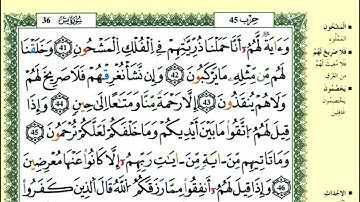 36 سورة يس حزب 45
وَءَايَةٌ لَّهُمُۥٓ أَنَّا حَمَلْنَا ذُرِّيَّٰتِهِمْ فِى اِ۬لْفُلْكِ اِ۬لْمَشْحُونِ 41 وَخَلَقْنَا
لَهُم مِّن مِّثْلِهِۦ مَا يَرْكَبُونَ 42 وَإِن نَّشَأْ نُغْرِقْهُمْ فَلَا صَرِيخَ
لَهُمْ وَلَا هُمْ يُنقَذُونَ 43 إِلَّا رَحْمَةً مِّنَّا وَمَتَٰعًا اِلَىٰ حِينٍ 44 وَإِذَا
قِيلَ لَهُمُ اُ۪تَّقُوا۟ مَا بَيْنَ أَيْدِيكُمْ وَمَا خَلْفَكُمْ لَعَلَّكُمْ تُرْحَمُونَ 45
وَمَا تَاتِيهِم مِّنَ اٰيَةٍ مِّنَ اٰيَٰتِ رَبِّهِمُۥٓ إِلَّا كَانُوا۟ عَنْهَا مُعْرِضِينَ
46 وَإِذَا قِيلَ لَهُمُۥٓ أَنفِقُوا۟ مِمَّا رَزَقَكُمُ اُ۬للَّهُ قَالَ اَ۬لَّذِينَ كَفَرُوا۟
الْمَشْحُونِ
الْمَمْلُوءِ
فَلَا صَرِيخَ لَهُمْ
فَلَا مُغِيثَ لَهُمْ
مِنَ الْغَرَقِ
يَخِصِّمُونَ
غَافِلِينَ
الْأَجْدَاثِ